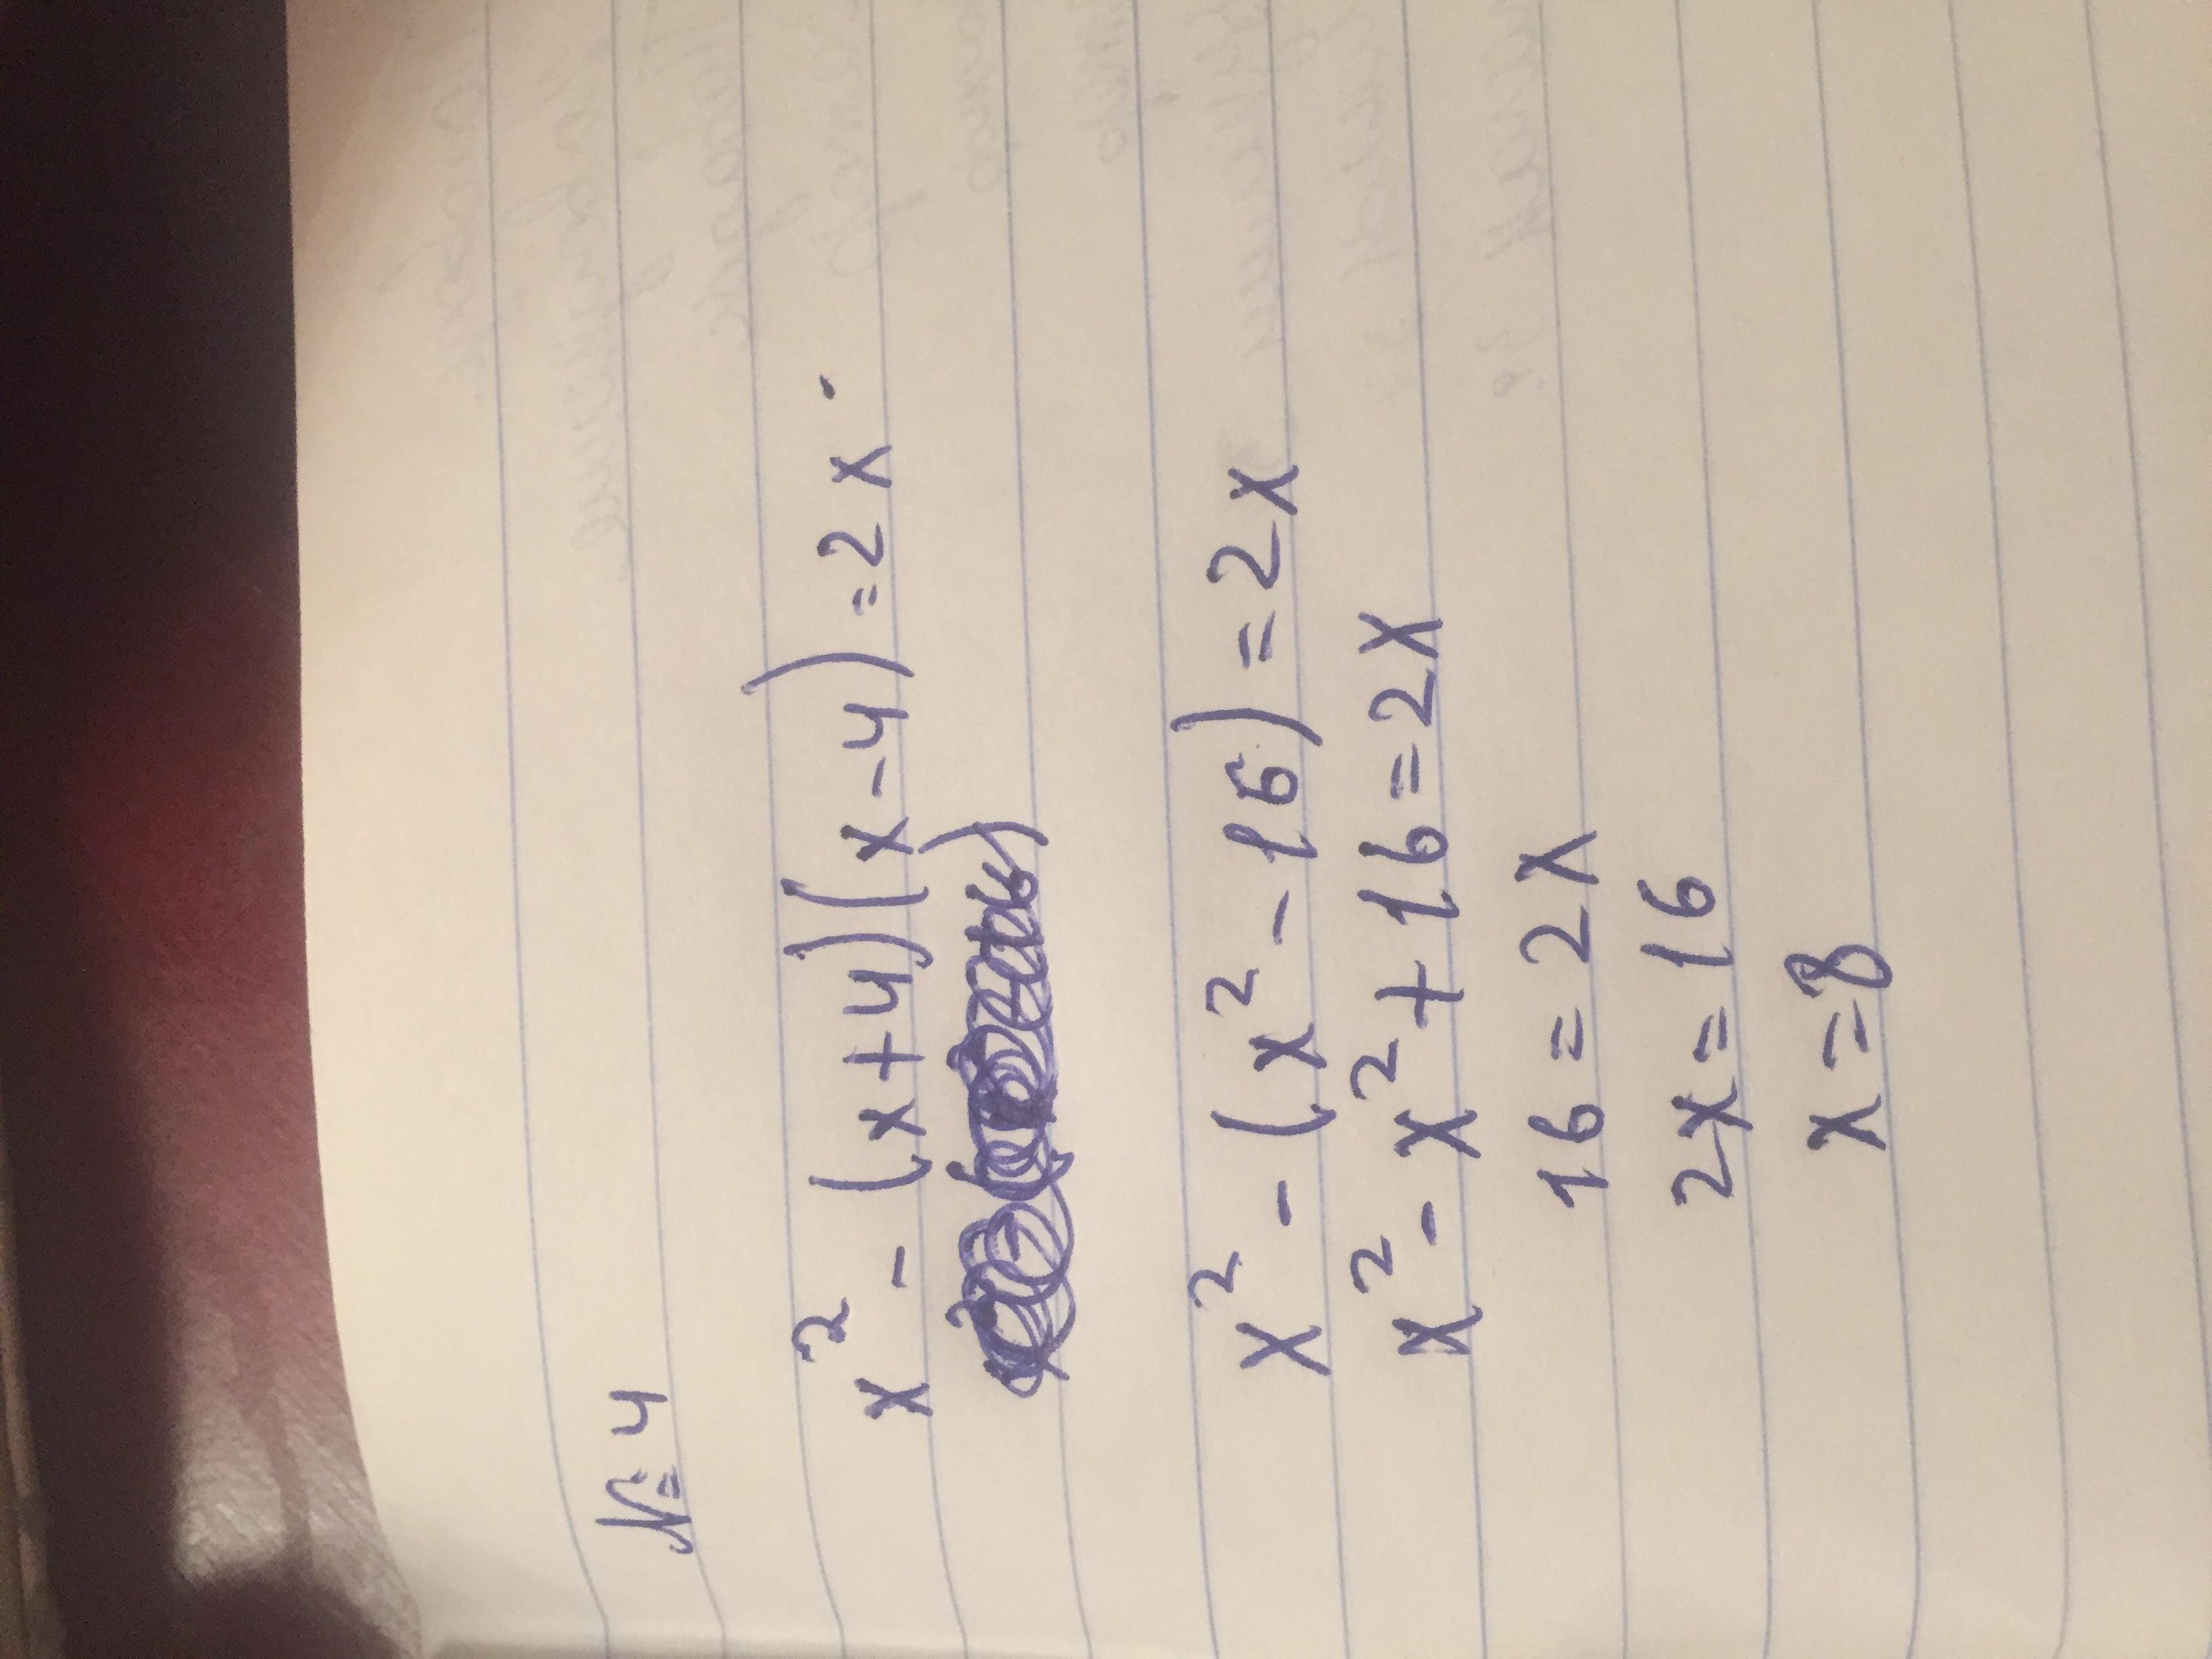 №4
x² - (x+4)(x-4) = 2x
x² - (x² - 16) = 2x
x² - x² + 16 = 2x
16 = 2x
2x = 16
x = 8